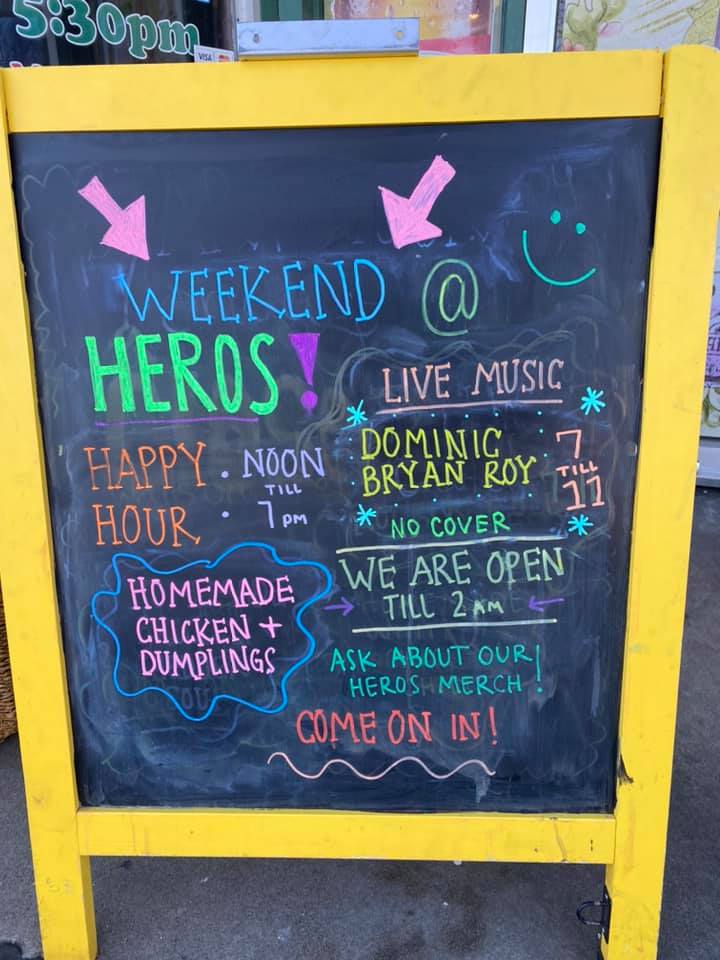 5:30pm
VISA
WEEKEND @
HEROS!
HAPPY . NOON
TILL
HOUR . 7PM
LIVE MUSIC
DOMINIC 7
BRYAN ROY TILL
11
NO COVER
HOMEMADE
CHICKEN +
DUMPLINGS
WE ARE OPEN
TILL 2AM
ASK ABOUT OUR
HEROS MERCH!
COME ON IN!